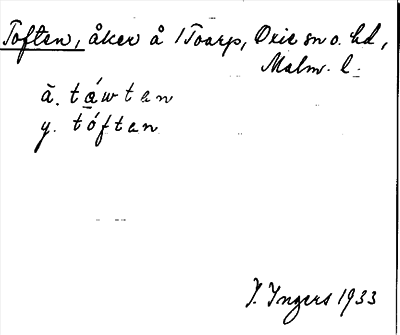 Toften, åker å 1 Toarp, Oxie sn o. hd,
Malm. l.
ā. táwtan
y. tóftan
I. Ingers 1933